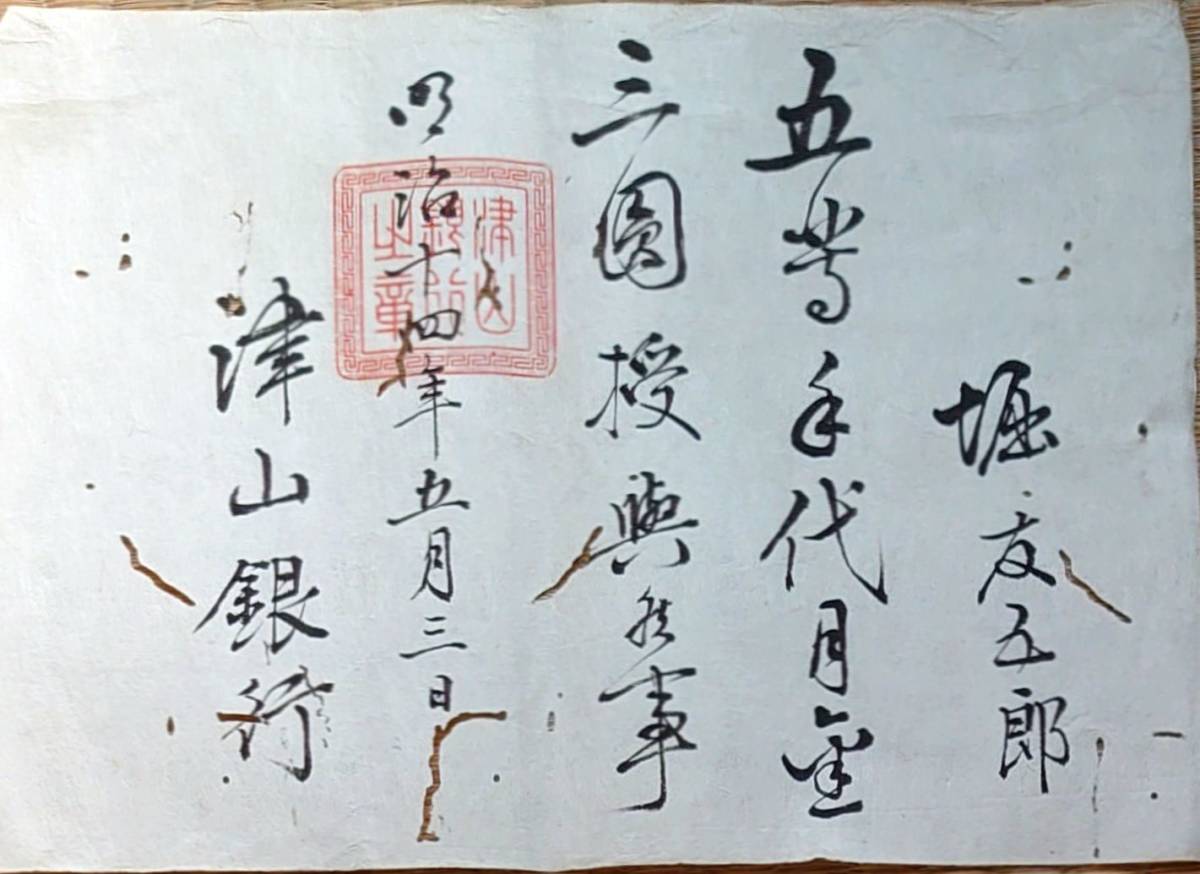 堀友五郎
五等手代月金
三圓授與候事
明治十四年五月三日
津山銀行
津山銀行之章